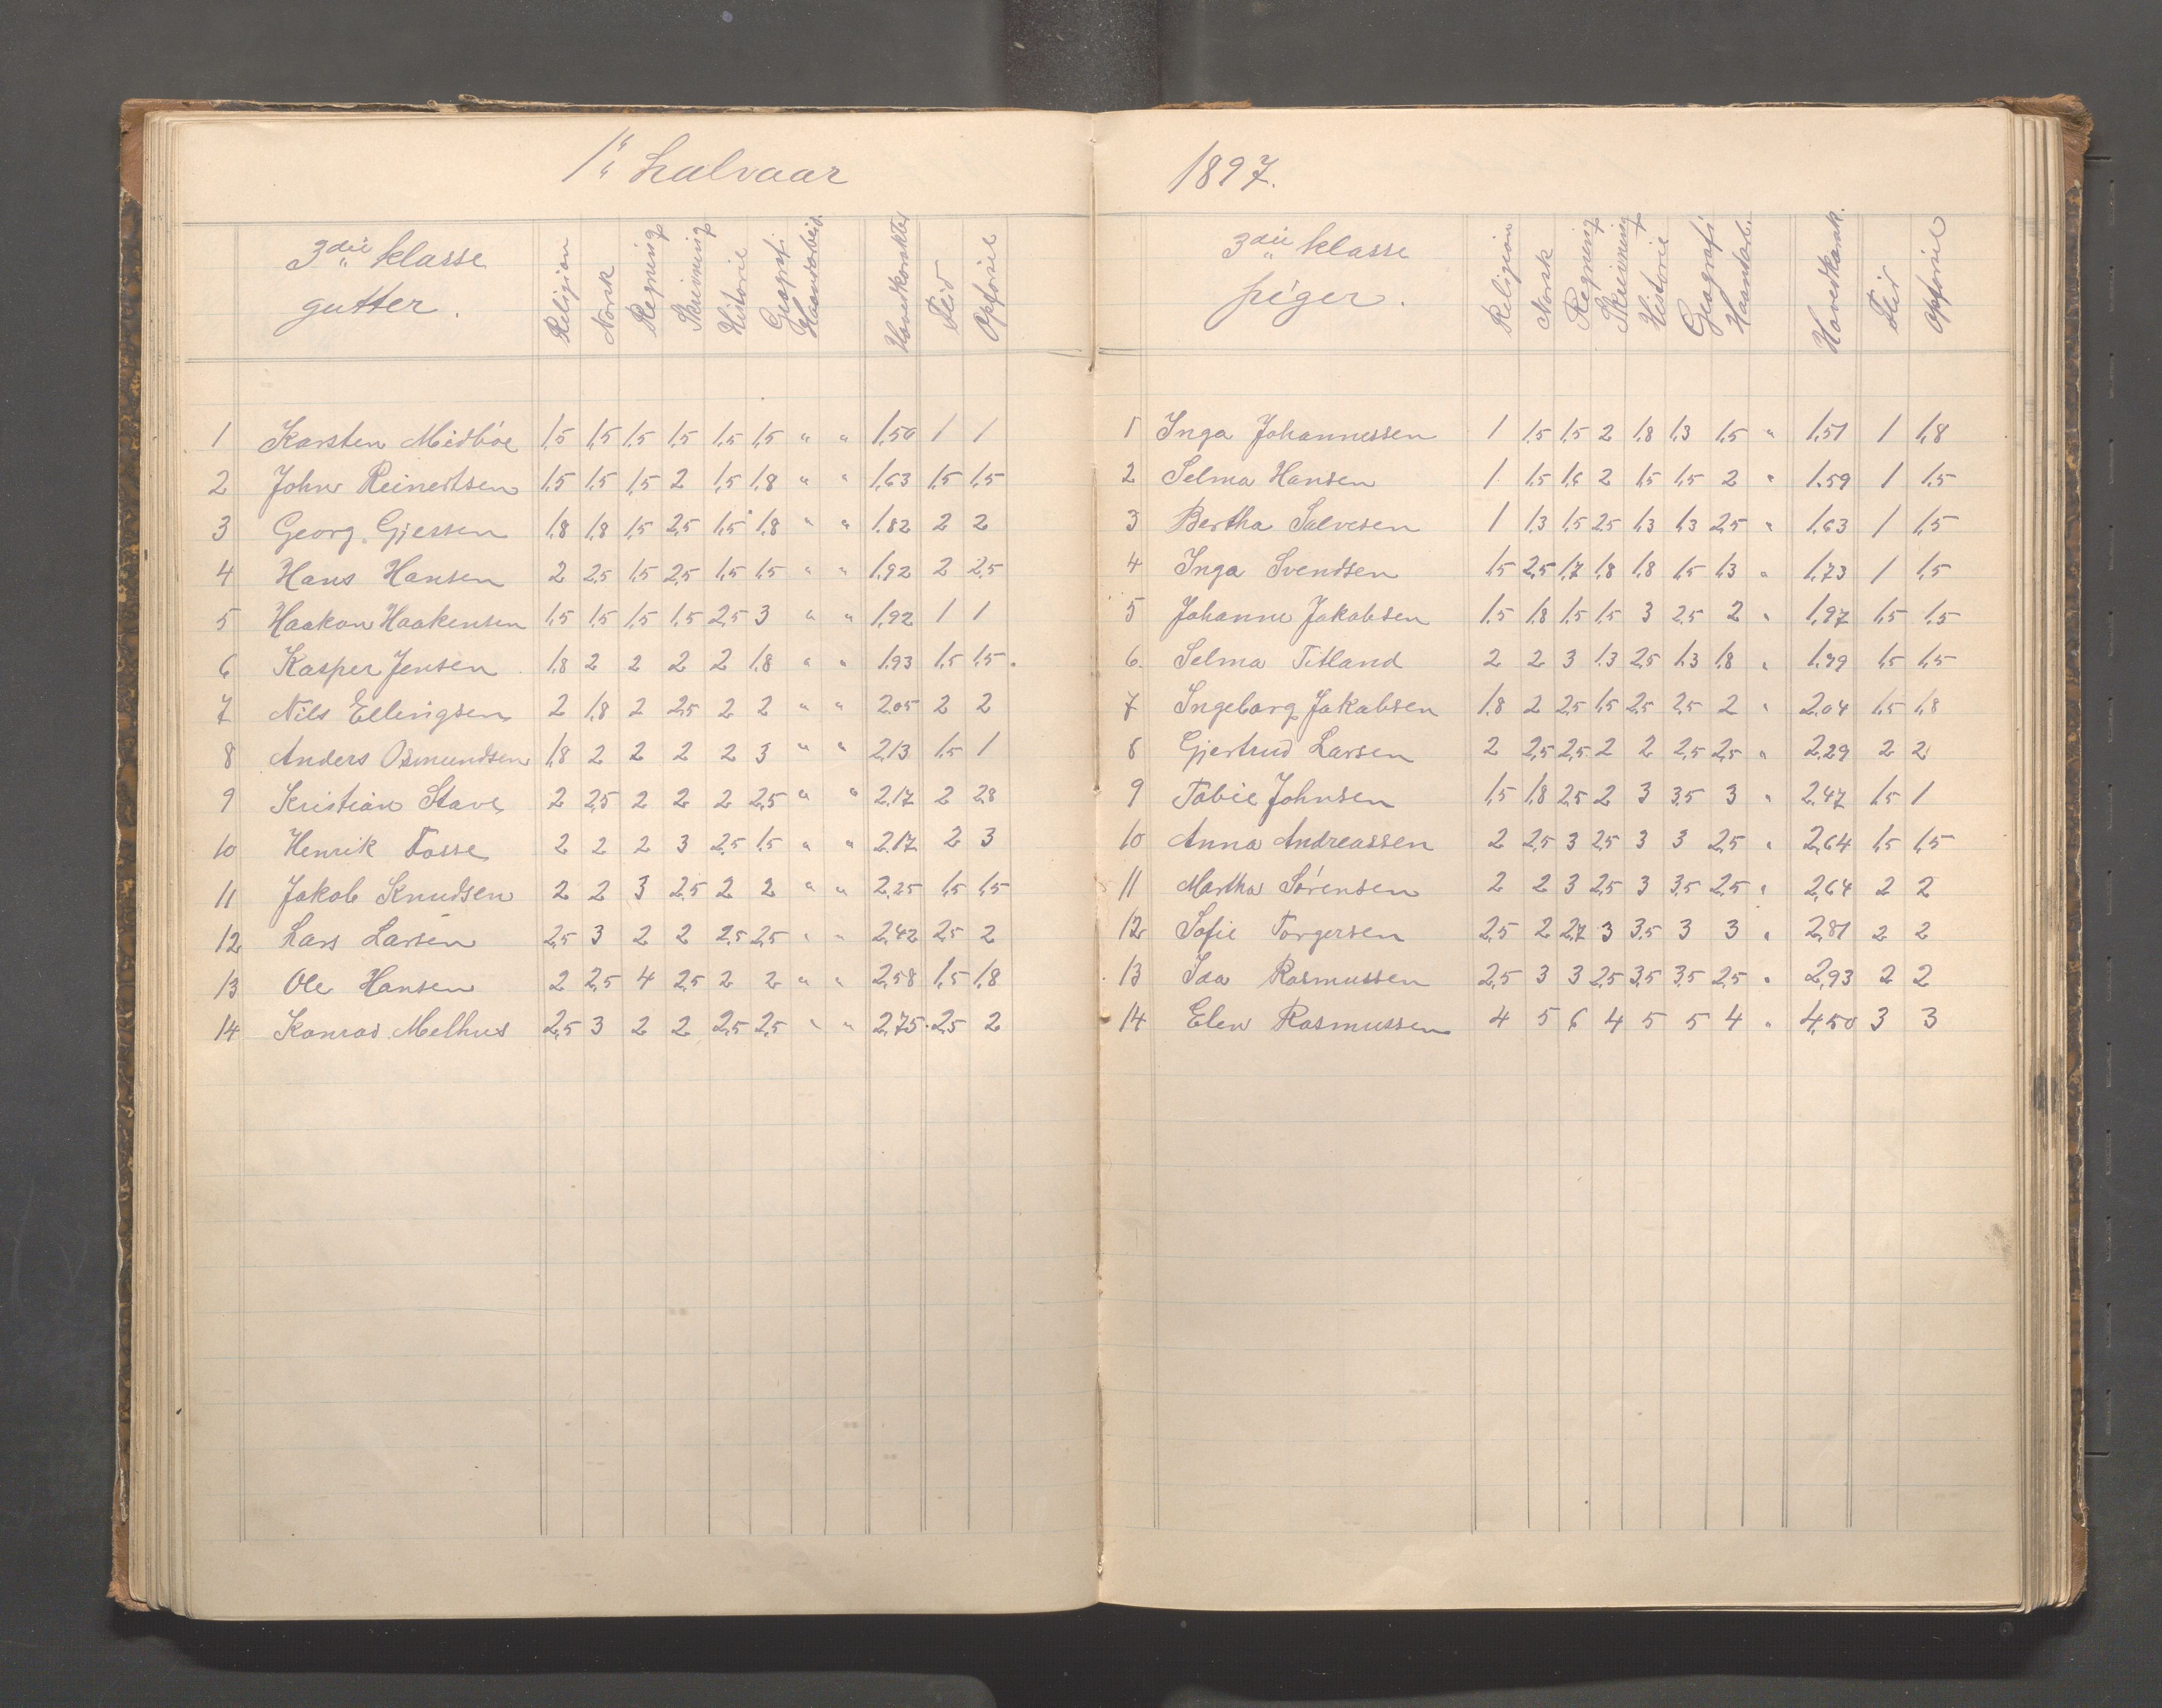 1ste halvaar
3die klasse
gutter.
Religion Norsk Regning Skrivning Historie Geografi Haandarbeid Hovedkarakter Flid Opførsel
1 Karsten Midbøe 1,5 1,5 1,5 1,5 1,5 1,5 " " 1,50 1 1
2 John Reinertsen 1,5 1,5 1,5 2 1,5 1,8 " " 1,63 1,5 1,5
3 Georg Gjessen 1,8 1,8 1,5 2,5 1,5 1,8 " " 1,82 2 2
4 Hans Hansen 2 2,5 1,5 2,5 1,5 1,5 " " 1,92 2 2,5
5 Haakon Haakensen 1,5 1,5 1,5 1,5 2,5 3 " " 1,92 1 1
6 Kasper Jensen 1,8 2 2 2 2 1,8 " " 1,93 1,5 1,5.
7 Nils Ellingsen 2 1,8 2 2,5 2 2 " " 2,05 2 2
8 Anders Osmundsen 1,8 2 2 2 2 3 " " 2,13 1,5 1
9 Kristian Stave 2 2,5 2 2 2 2,5 " " 2,17 2 2,8
10 Henrik Fosse 2 2 2 3 2,5 1,5 " " 2,17 2 3
11 Jakob Knudsen 2 2 3 2,5 2 2 " " 2,25 1,5 1,5
12 Lars Larsen 2,5 3 2 2 2,5 2,5 " " 2,42 2,5 2
13 Ole Hansen 2 2,5 4 2,5 2 2 " " 2,58 1,5 1,8
14 Konrad Melhus 2,5 3 2 2 2,5 2,5 " " 2,75 2,5 2
1897.
3die klasse
piger.
Religion Norsk Regning Skrivning Historie Geografi Haandarb. Hovedkarak. Flid Opførsel
1 Inga Johannessen 1 1,5 1,5 2 1,8 1,3 1,5 " 1,51 1 1,8
2 Selma Hansen 1 1,5 1,6 2 1,5 1,5 2 " 1,59 1 1,5
3 Bertha Salvesen 1 1,3 1,5 2,5 1,3 1,3 2,5 " 1,63 1 1,5
4 Inga Svendsen 1,5 2,5 1,7 1,8 1,8 1,5 1,3 " 1,73 1 1,5
5 Johanne Jakobsen 1,5 1,8 1,5 1,5 3 2,5 2 " 1,97 1,5 1,5
6. Selma Titland 2 2 3 1,3 2,5 1,3 1,8 " 1,99 1,5 1,5
7 Ingeborg Jakobsen 1,8 2 2,5 1,5 2,5 2,5 2 " 2,04 1,5 1,8
8 Gjertrud Larsen 2 2,5 2,5 2 2 2,5 2,5 " 2,29 2 2
9 Tobie Johnsen 1,5 1,8 2,5 2 3 3,5 3 " 2,47 1,5 1
10 Anna Andreassen 2 2,5 3 2,5 3 3 2,5 " 2,64 1,5 1,5
11 Martha Sørensen 2 2 3 2,5 3 3,5 2,5 " 2,64 2 2
12 Sofie Torgersen 2,5 2 2,7 3 3,5 3 3 " 2,81 2 2
13 Ida Rasmussen 2,5 3 3 2,5 3,5 3,5 2,5 " 2,93 2 2
14 Elen Rasmussen 4 5 6 4 5 5 4 " 4,50 3 3